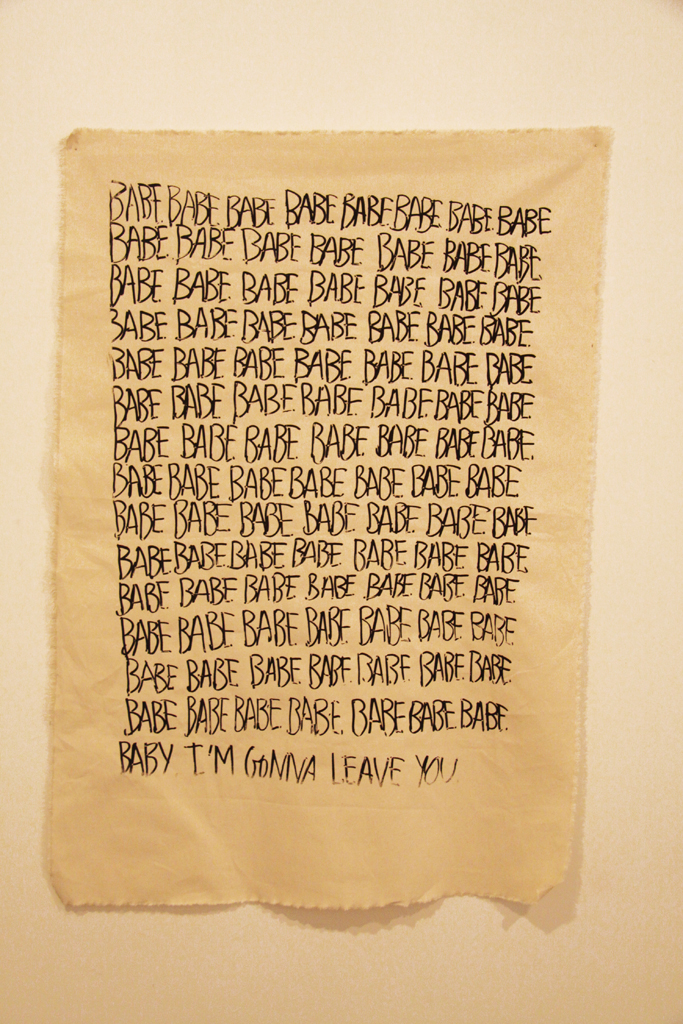 BABE BABE BABE BABE BABE BABE BABE BABE
BABE BABE BABE BABE BABE BABE BABE
BABE BABE BABE BABE BABE BABE BABE
BABE BABE BABE BABE BABE BABE BABE
BABE BABE BABE BABE BABE BABE BABE
BABE BABE BABE BABE BABE BABE BABE
BABE BABE BABE BABE BABE BABE BABE
BABE BABE BABE BABE BABE BABE BABE
BABE BABE BABE BABE BABE BABE BABE
BABE BABE BABE BABE BABE BABE BABE
BABE BABE BABE BABE BABE BABE BABE
BABE BABE BABE BABE BABE BABE BABE
BABE BABE BABE BABE BABE BABE BABE
BABE BABE BABE BABE BABE BABE BABE
BABY I'M GONNA LEAVE YOU